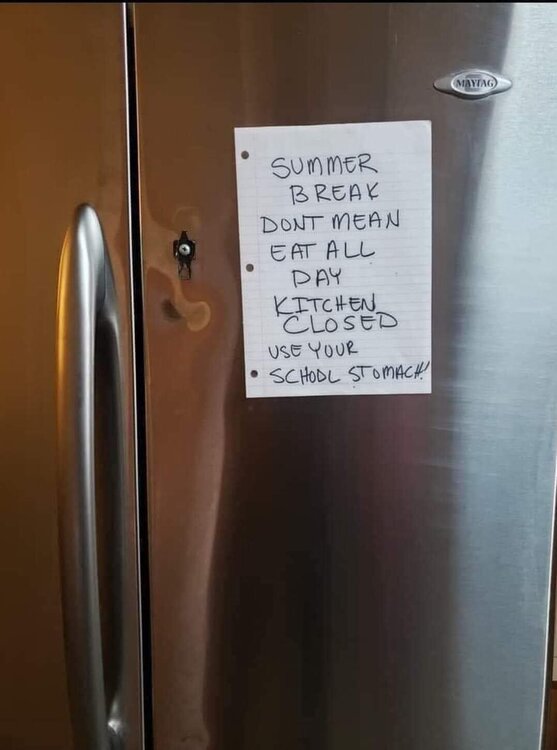 MAYTAG
SUMMER
BREAK
DONT MEAN
EAT ALL
DAY
KITCHEN
CLOSED
USE YOUR
SCHOOL STOMACH!